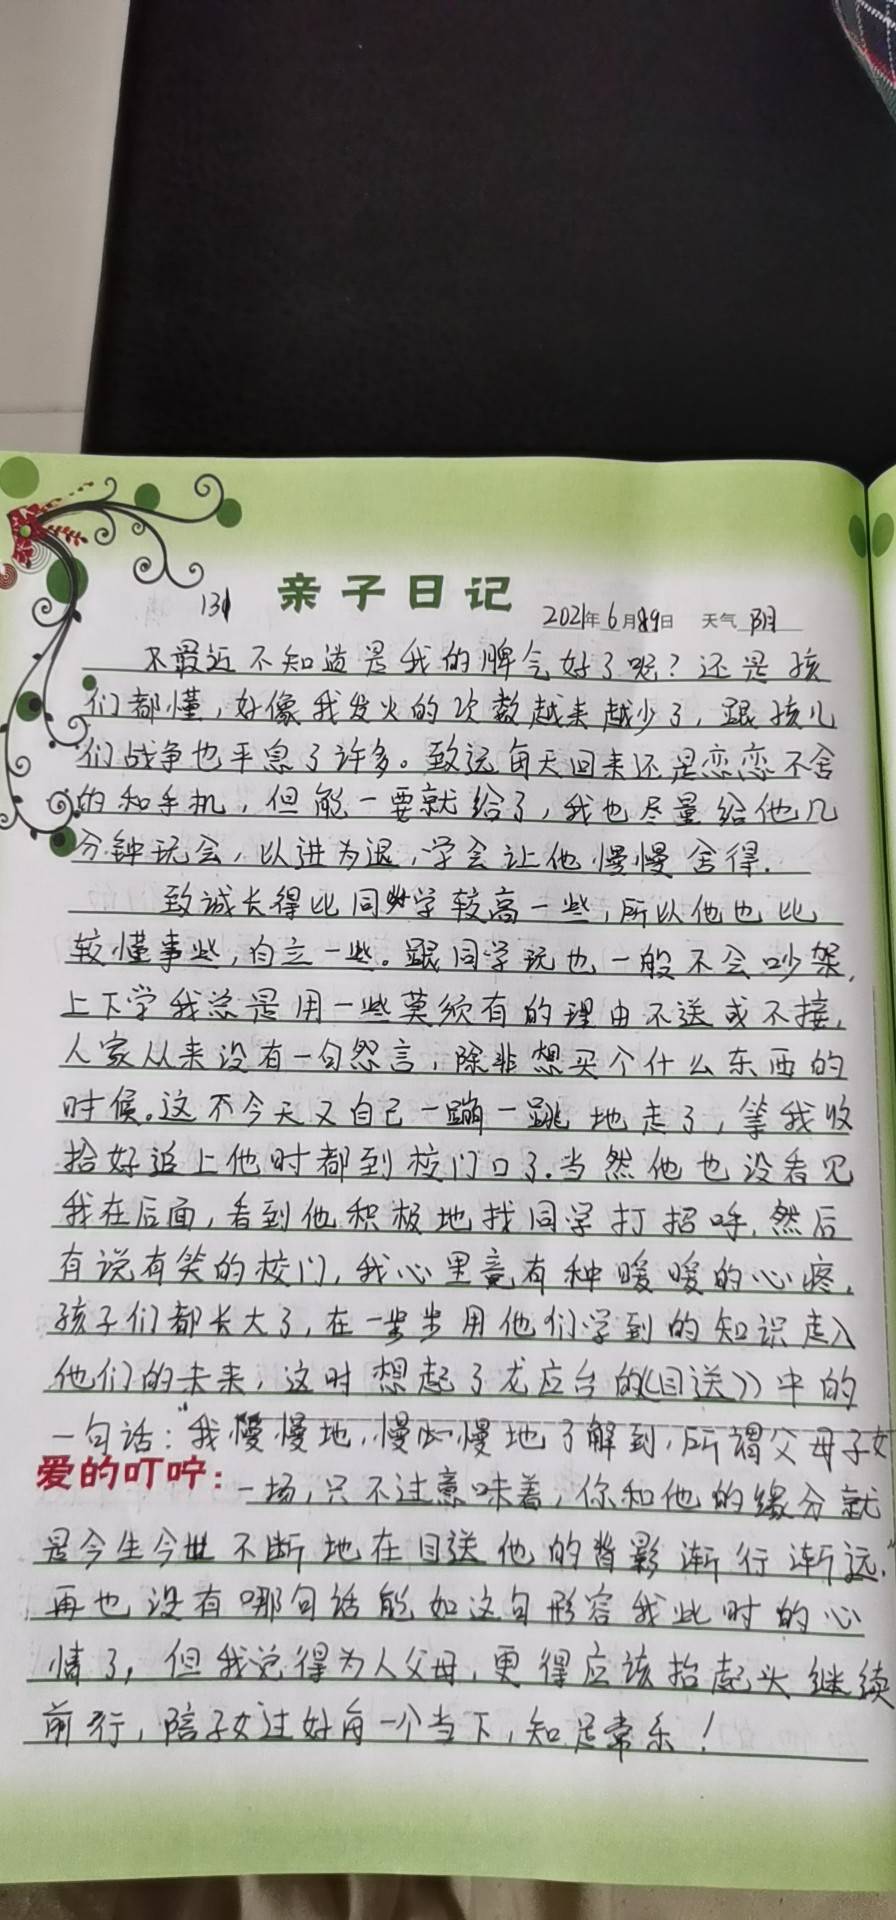 131 亲子日记 2021年6月9日 天气 阴
最近不知道是我的脾气好了呢？还是孩
们都懂，好像我发火的次数越来越少了，跟孩儿
们战争也平息了许多。致远每天回来还是恋恋不舍
的和手机，但能一要就给了，我也尽量给他几
分钟玩会，以进为退，学会让他慢慢舍得.
致诚长得比同学较高一些，所以他也比
较懂事些，自立一些。跟同学玩也一般不会吵架，
上下学我总是用一些莫须有的理由不送或不接，
人家从来没有一句怨言，除非想买个什么东西的
时候。这不今天又自己一蹦一跳地走了，等我收
拾好追上他时都到校门口了.当然他也没看见
我在后面，看到他积极地找同学打招呼，然后
有说有笑的校门，我心里竟有种暖暖的心疼，
孩子们都长大了，在一步步用他们学到的知识走入
他们的未来，这时想起了龙应台的《目送》中的
一句话：“我慢慢地，慢慢地了解到，所谓父母子女
爱的叮咛：一场，只不过意味着，你和他的缘分就
是今生今世不断地在目送他的背影渐行渐远.”
再也没有哪句话能如这句形容我此时的心
情了，但我觉得为人父母，更得应该抬起头继续
前行，陪子女过好每一个当下，知足常乐！